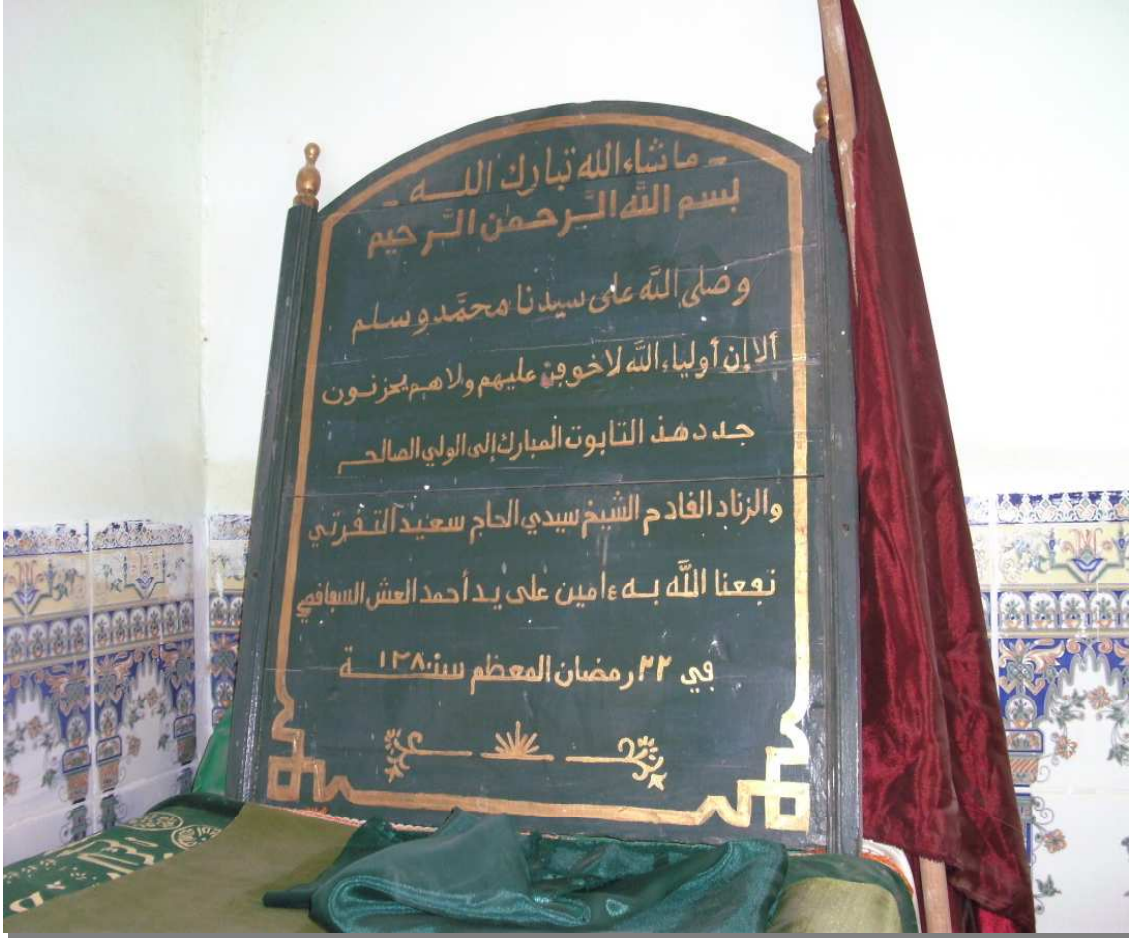 - ما شاء الله تبارك اللـــه -
بسم الله الرَّحمٰن الرَّحيم
وصلى اللَّه على سيدنا محمَّد وسلم
ألا إن أولياء اللَّه لا خوف عليهم ولا هم يحزنون
جدد هذ التابوت المبارك إلى الولي الصالح
والزناد الفادم الشيخ سيدي الحاج سعيد التفرتي
نفعنا اللَّه به ءامين على يد أحمد العش
في ٢٢ رمضان المعظم سنـ١٢٨٠ـة